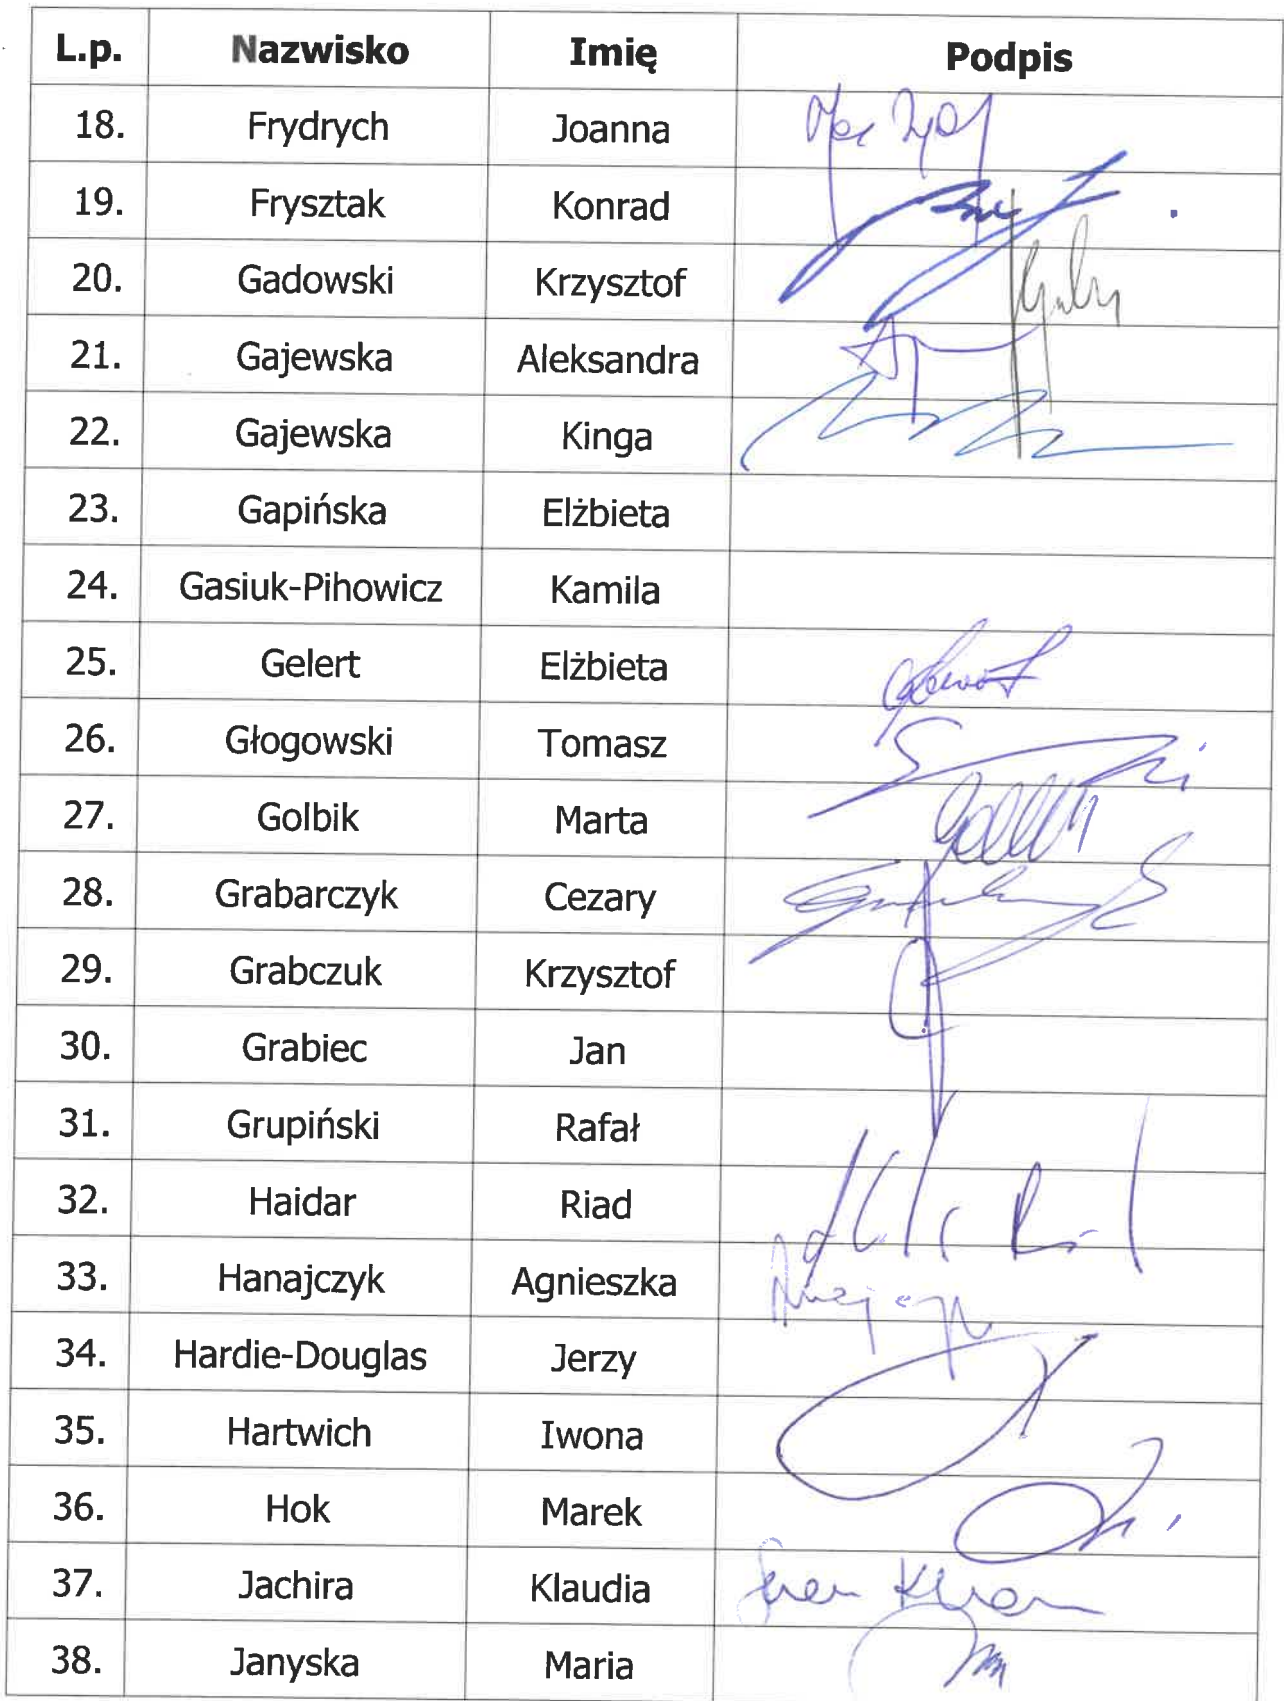 L.p. Nazwisko Imię Podpis
18. Frydrych Joanna
19. Frysztak Konrad
20. Gadowski Krzysztof
21. Gajewska Aleksandra
22. Gajewska Kinga
23. Gapińska Elżbieta
24. Gasiuk-Pihowicz Kamila
25. Gelert Elżbieta
26. Głogowski Tomasz
27. Golbik Marta
28. Grabarczyk Cezary
29. Grabczuk Krzysztof
30. Grabiec Jan
31. Grupiński Rafał
32. Haidar Riad
33. Hanajczyk Agnieszka
34. Hardie-Douglas Jerzy
35. Hartwich Iwona
36. Hok Marek
37. Jachira Klaudia
38. Janyska Maria